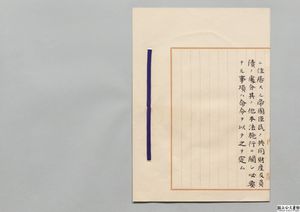 ニ住居スル帝国臣民ノ共同財産及負
債ノ処分其ノ他本法施行ニ関シ必要
ナル事項ハ命令ヲ以テ之ヲ定ム
国立公文書館